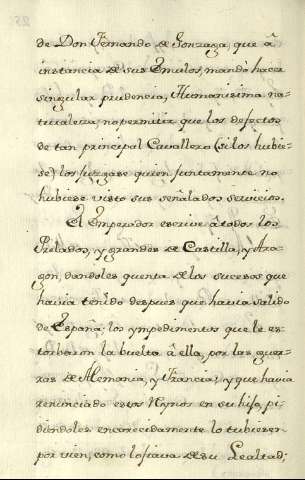 de Don Fernando de Gonzaga, que â
instancia de sus Emulos, mandó hacer
singular prudencia, Humanisima na-
turaleza, no permitir que los defectos
de tan principal Cavallero (si los hubie-
se) los juzgase quien juntamente no
hubiere visto sus señalados servicios.
El Emperador escrive â todos los
Prelados, y grandes de Castilla, y Ara-
gon, dandoles quenta de los sucesos que
havia tenido despues que havia salido
de España; los ympedimentos que le es-
torbaron la buelta â ella, por las guer-
ras de Alemania, y Francia; y que havia
renunciado estos Reynos en su hijo, pi-
diendoles encarecidamente lo tubiesen
por vien, como lo fiava de su Lealtad;